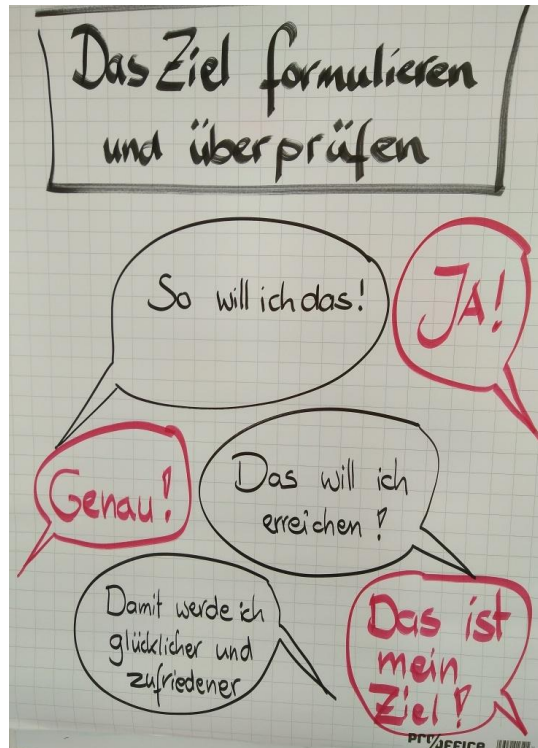 Das Ziel formulieren
und überprüfen
So will ich das!
JA!
Genau!
Das will ich
erreichen!
Damit werde ich
glücklicher und
zufriedener
Das ist
mein
Ziel!